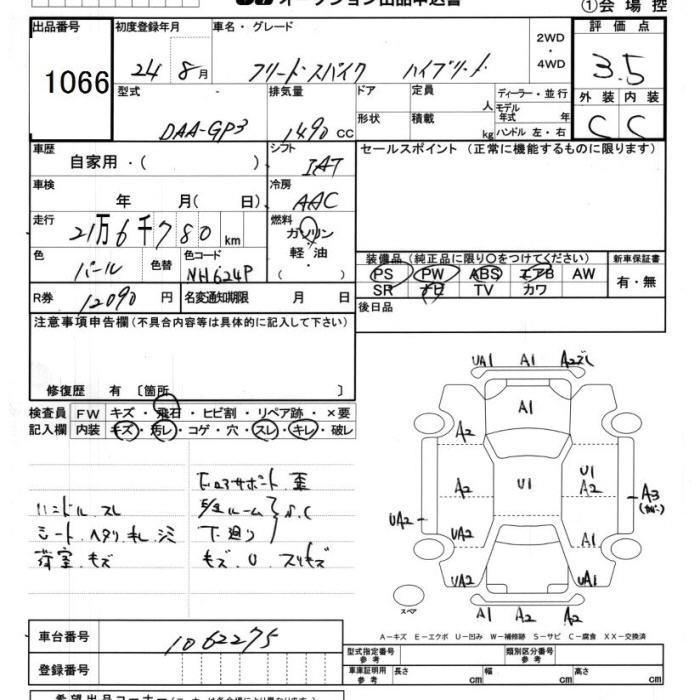 オークション出品申込書
①会場控
出品番号 初度登録年月 車名・グレード 2WD・4WD 評価点
1066 24年8月 フリードスパイク ハイブリッド 3.5
型式 排気量 ドア 定員 人 ディーラー・並行 外装 内装
DAA-GP3 1490 CC 形状 積載 kg モデル年式 年 ハンドル 左・右 C C
車歴 自家用・( ) シフト IAT セールスポイント (正常に機能するものに限ります)
車検 年 月( 日) 冷房 AAC
走行 21万6千780km 燃料 ガソリン 軽油 ( )
色 パール 色替 色コード NH624P
装備品 (純正品に限り○をつけてください) 新車保証書
PS PW ABS エアB AW 有・無
SR ナビ TV カワ
R券 12090円 名変通知期限 月 日 後日品
注意事項申告欄(不具合内容等は具体的に記入して下さい)
修復歴 有 〔箇所 〕
検査員 FW キズ・飛石・ヒビ割・リペア跡・×要
記入欄 内装 キズ・汚レ・コゲ・穴・スレ・キレ・破レ
ハンドル スレ
シート ヘタリ キレ シミ
荷室 キズ
コアサポート 歪
ルーム
下廻り S.C
キズ U スリキズ
UA1 A1 A2ズレ
A1
A2
A2 U1 U1 A2 A3
UA2
UA2 A1
UA2 UA1
スペア A1 A2 A2
A-キズ E-エクボ U-凹み W-補修跡 S-サビ C-腐食 XX-交換済
車台番号 1062275
登録番号
型式指定番号 参考 類別区分番号 参考
車庫証明用 参考 長さ cm 幅 cm 高さ cm
希望出品コーナー